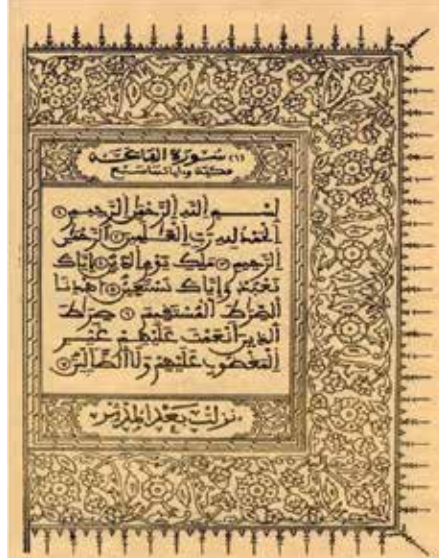 (١) سورة الفاتحة
مكية وءاياتها سبع
بِسْمِ اِللَّهِ اِلرَّحْمَٰنِ اِلرَّحِيمِ ١
اِلْحَمْدُ لِلهِ رَبِّ اِلْعَٰلَمِينَ ٢ اَلرَّحْمَٰنِ
اِلرَّحِيمِ ٣ مَلِكِ يَوْمِ اِلدِّينِ ٤ إِيَّاكَ
نَعْبُدُ وَإِيَّاكَ نَسْتَعِينُ ٥ اَهْدِنَا
اَلصِّرَٰطَ اَلْمُسْتَقِيمَ ٦ صِرَٰطَ
اَلذِينَ أَنْعَمْتَ عَلَيْهِمْ غَيْرِ
اِلْمَغْضُوبِ عَلَيْهِمْ وَلَا اَلضَّالِّينَ ٧
نزلت بعد المدثر